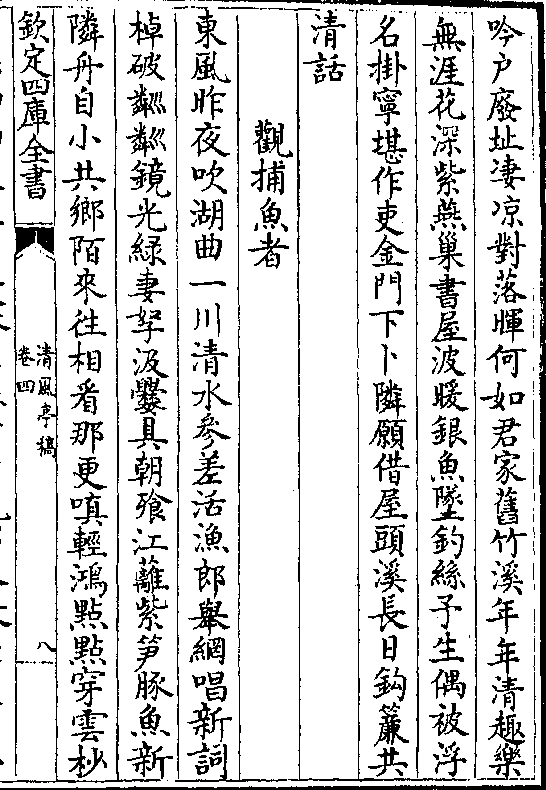 吟户廢址凄凉對落暉何如君家舊竹溪年年清趣樂
無涯花深紫燕巢書屋波暖銀魚墜釣絲予生偶被浮
名掛寧堪作吏金門下卜隣願借屋頭溪長日鈎簾共
清話
觀捕魚者
東風昨夜吹湖曲一川清水參差活漁郎舉網唱新詞
棹破粼粼鏡光緑妻孥汲爨具朝飱江蘺紫笋豚魚新
隣舟自小共鄉陌來往相看那更嗔輕鴻點點穿雲杪
欽定四庫全書
清風亭稿
卷四
八